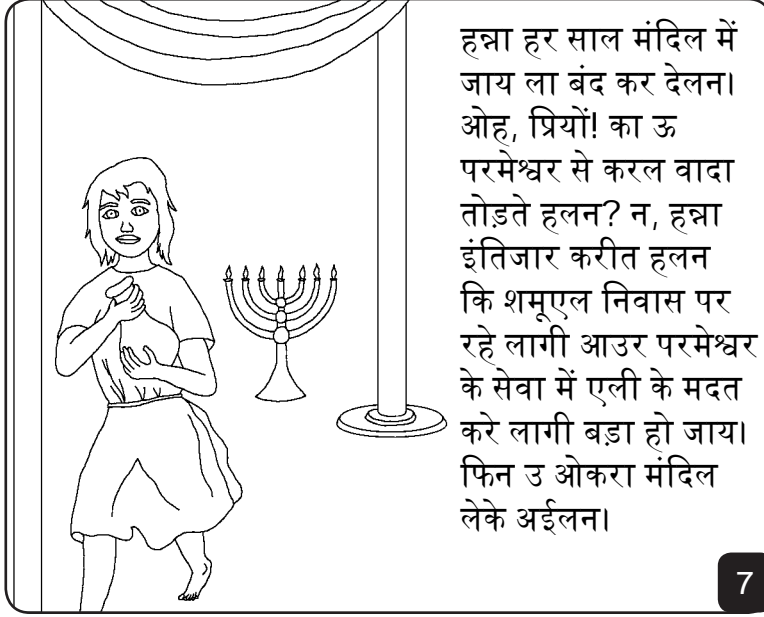 हन्ना हर साल मंदिल में
जाय ला बंद कर देलन।
ओह, प्रियों! का ऊ
परमेश्वर से करल वादा
तोड़ते हलन? न, हन्ना
इंतिजार करीत हलन
कि शमूएल निवास पर
रहे लागी आउर परमेश्वर
के सेवा में एली के मदत
करे लागी बड़ा हो जाय।
फिन उ ओकरा मंदिल
लेके अईलन।
7